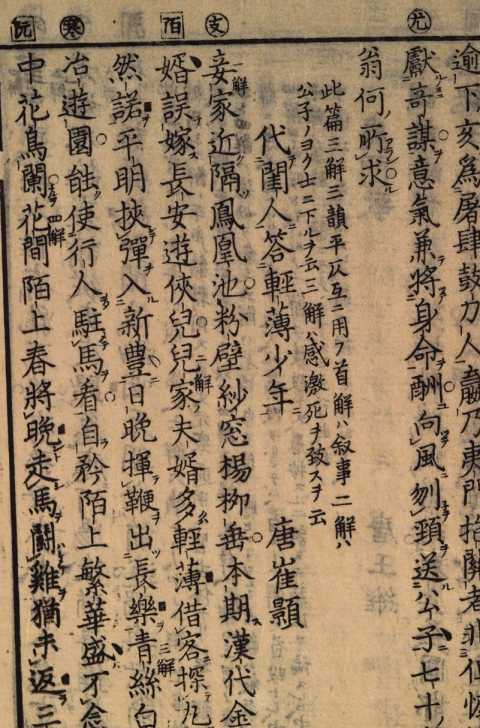 尤
支
陌
寒
阮
下亥為屠肆鼓刀人嬴乃夷門抱關者非但
獻奇謀意氣兼將身命酬向風刎頸送公子七十
翁何所求
此篇三解三韻平仄互ニ用フ首解ハ叙事二解ハ
公子ノヨク士ニ下ルヲ云三解ハ感激死ヲ致スヲ云
代閨人答輕薄少年 唐崔顥
妾家近隔鳳凰池粉壁紗窓楊柳垂本期漢代金
婿誤嫁長安遊俠兒兒家夫婿多輕薄借客探丸
然諾平明挾彈入新豐日晚揮鞭出長樂青絲白
冶遊園能使行人駐馬看自矜陌上繁華盛不念
中花鳥闌花間陌上春將晚走馬鬪雞猶未返三